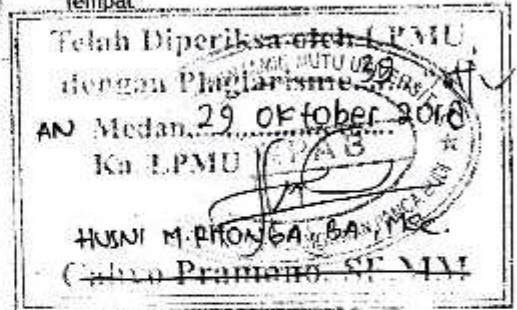 Tempat
Telah Diperiksa oleh LPMU
dengan Plagiarisme 39
AN Medan, 29 Oktober 2018
Ka. LPMU
UNPAB
HUSNI M. RITONGA, BA, MSc.
Cahyo Pramono, SE, MM